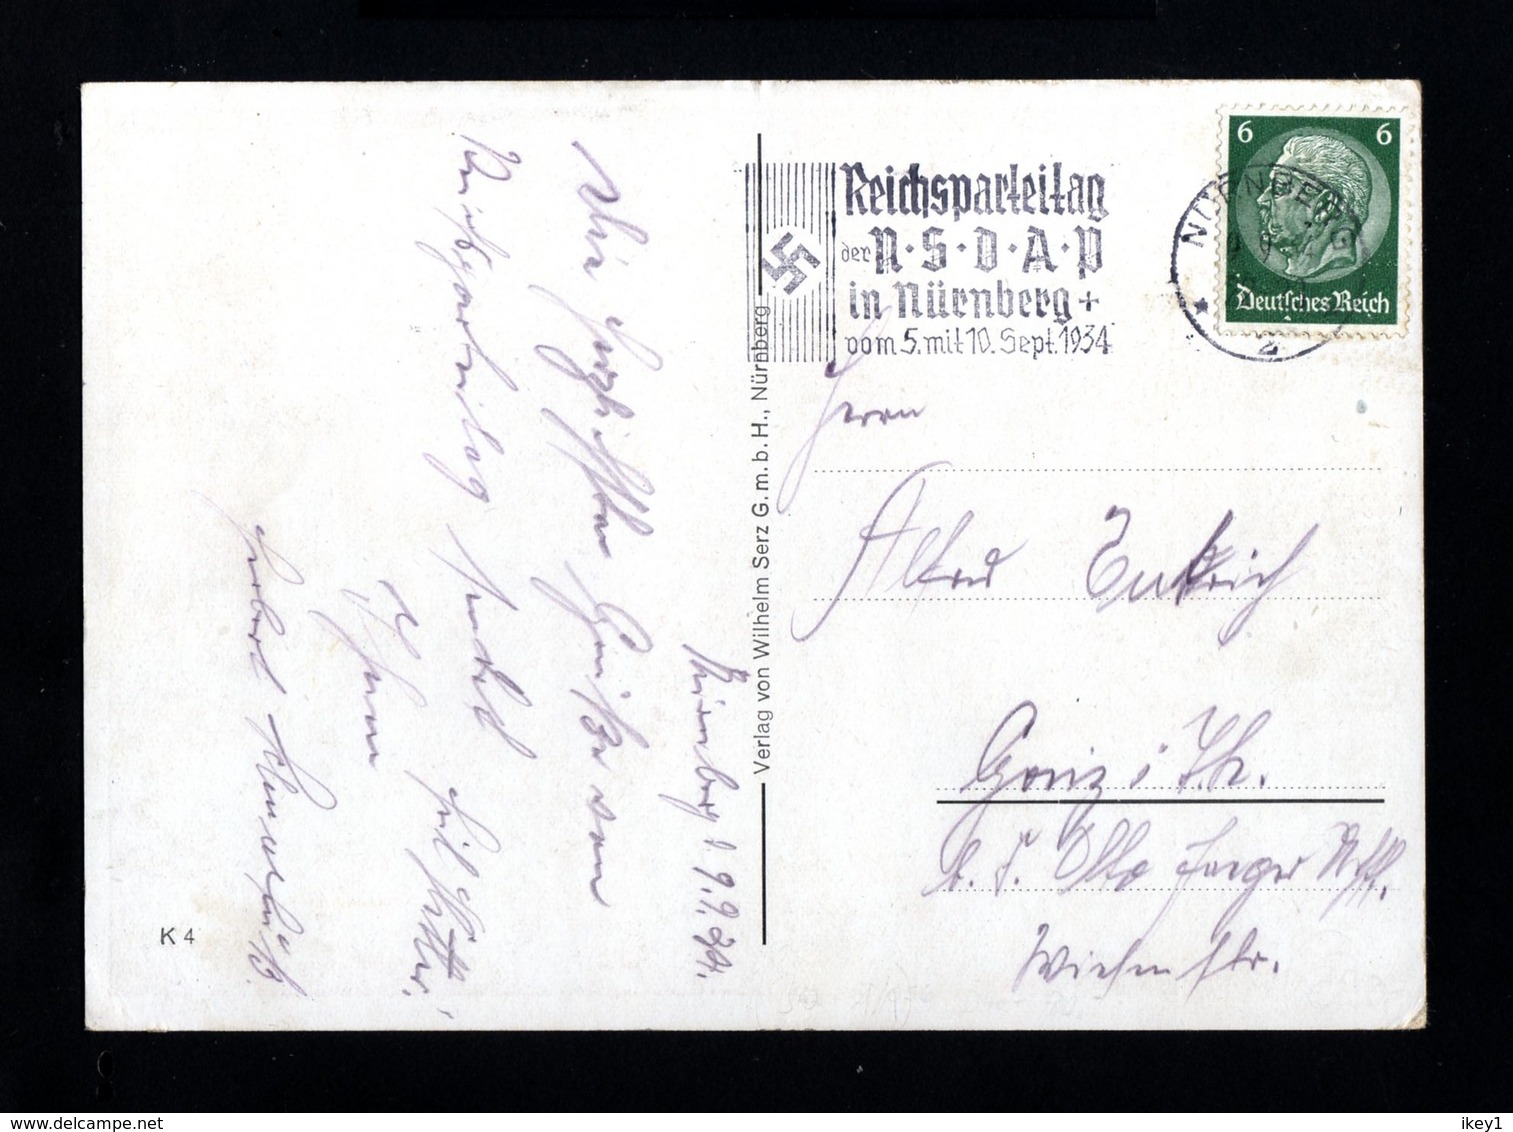 6 6
Deutsches Reich
NÜRNBERG
2
Reichsparteitag
der N·S·D·A·P
in Nürnberg +
vom 5. mit 10. Sept. 1934
Verlag von Wilhelm Serz G. m. b. H., Nürnberg
K 4
Nürnberg 9.9.34.
Die herzlichsten Grüße vom
Reichsparteitag sendet
Ihnen
Herbert
Herrn
Alfred
Greiz i. Th.
b. F. Otto Jaeger
Wiesenstr.
ikey1